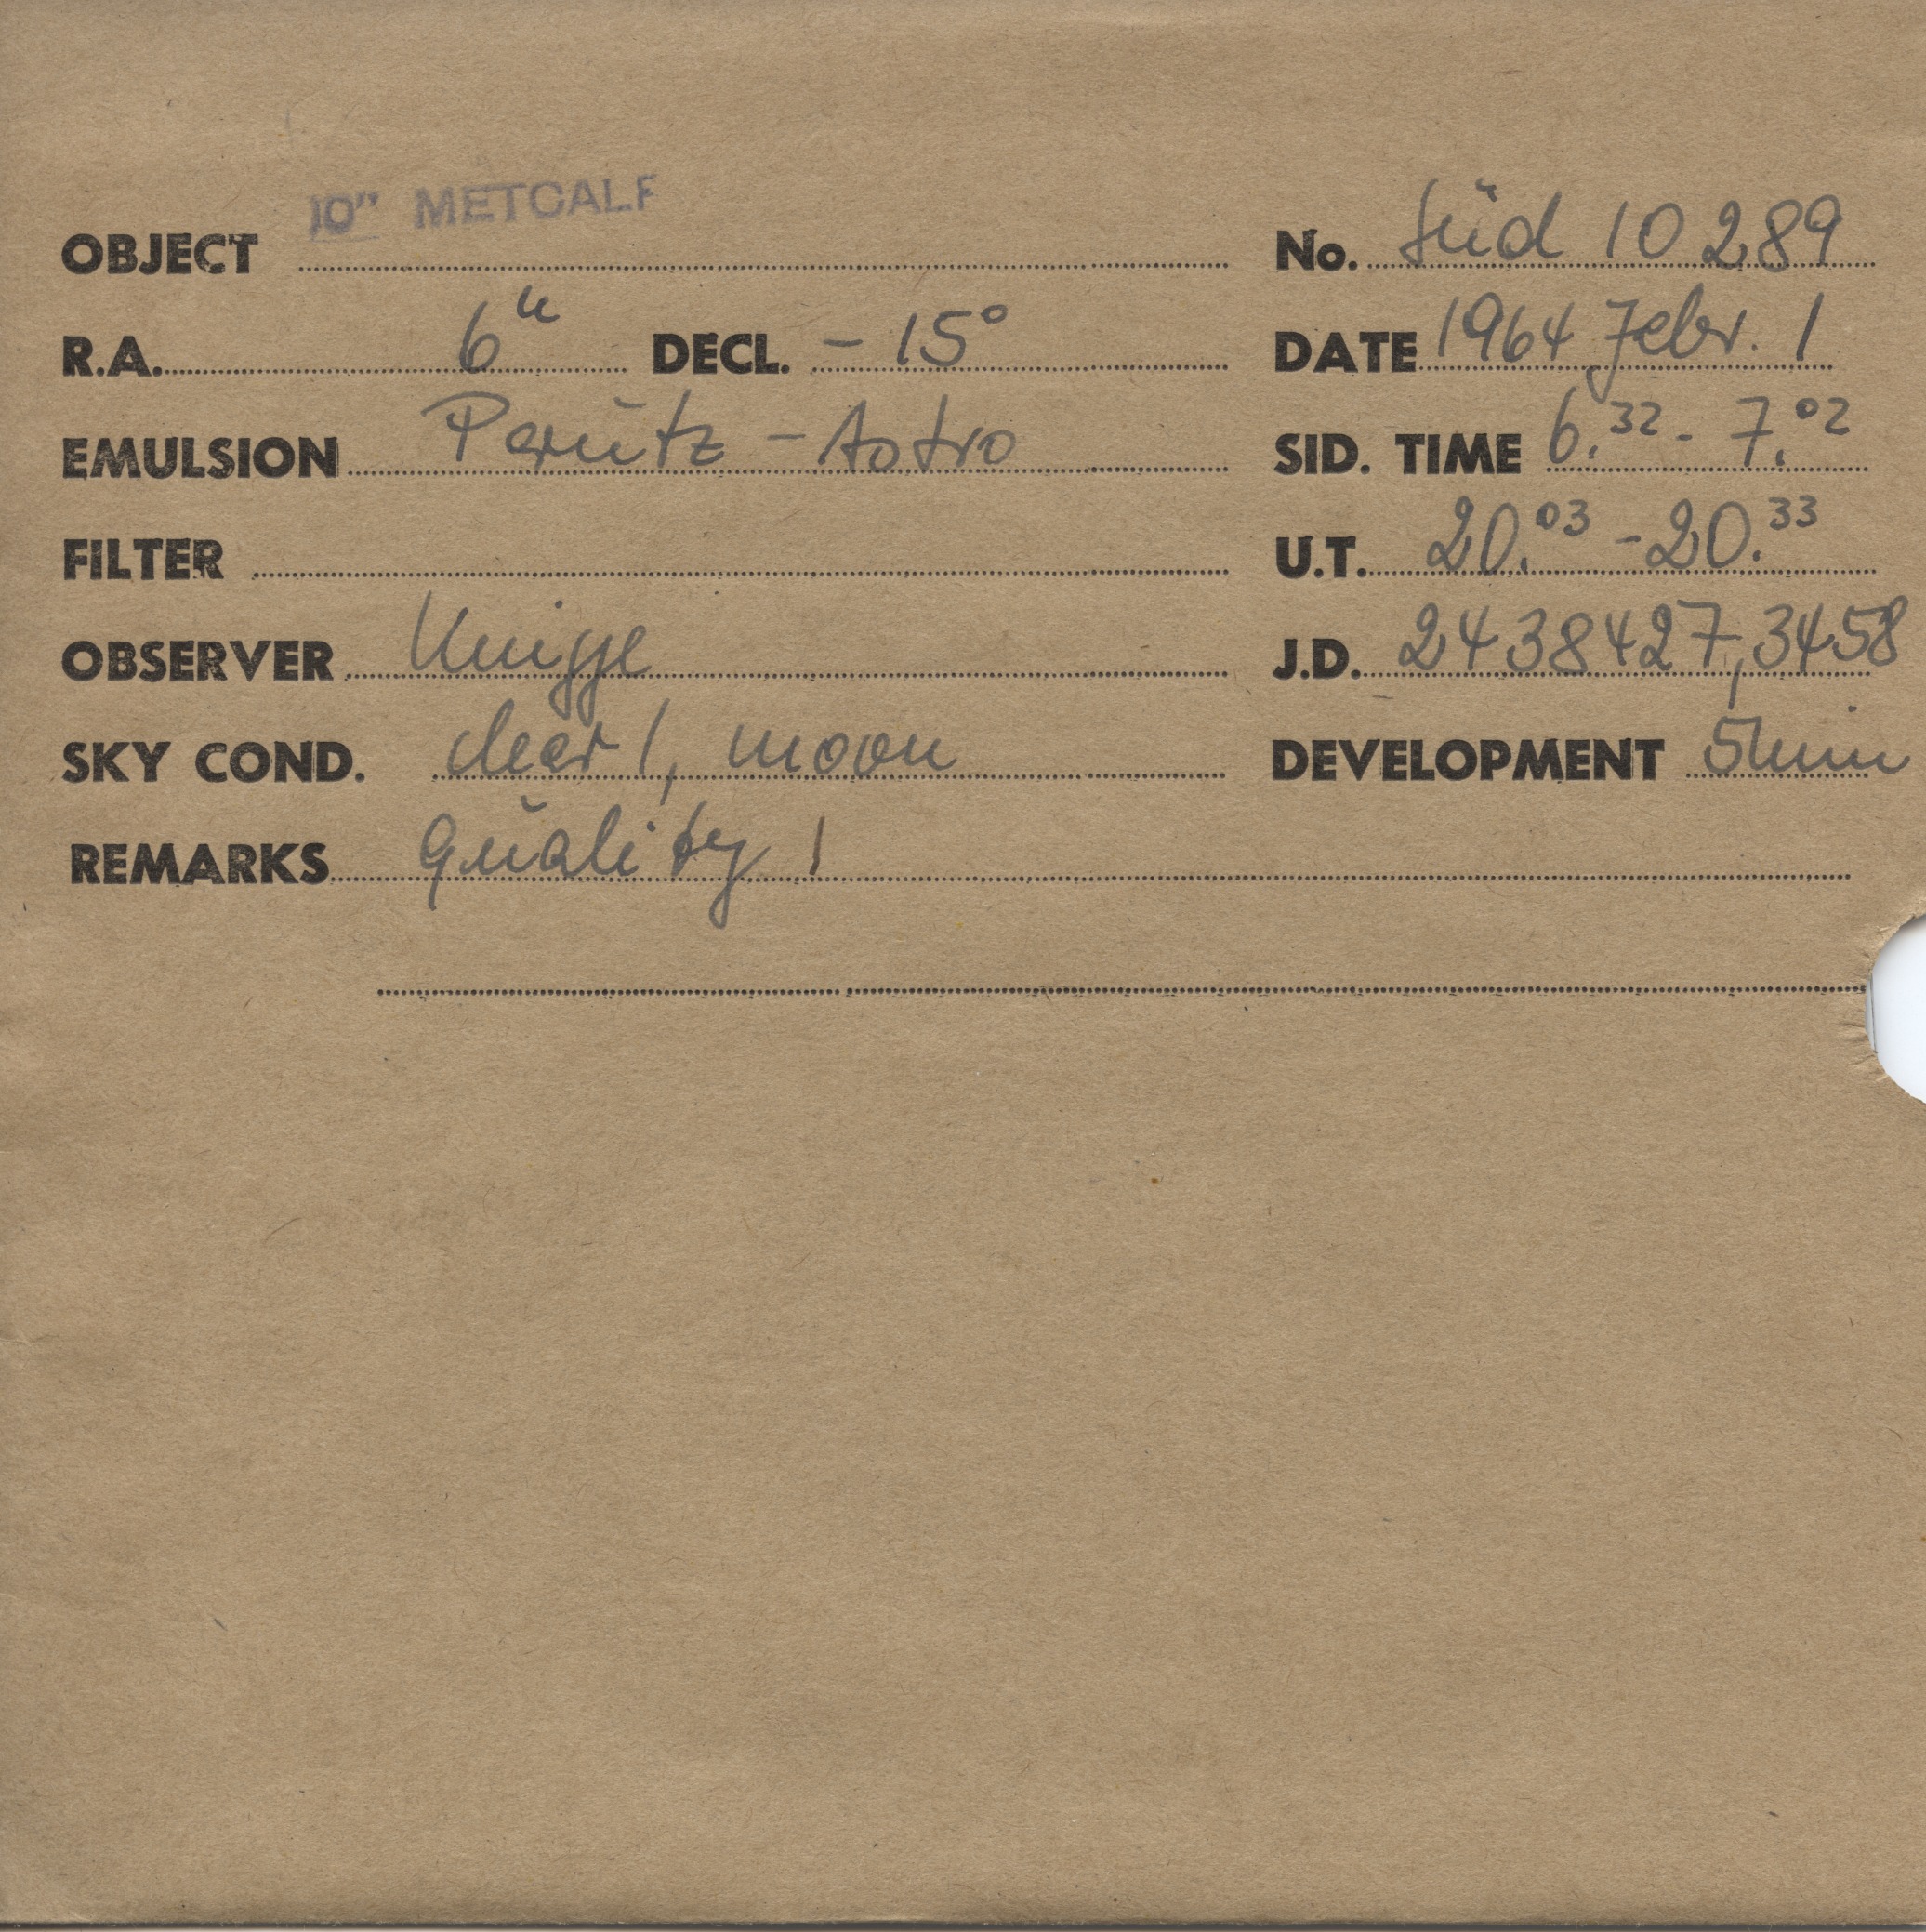 10" METCALF
OBJECT No. Süd 10 289
R.A. 6h DECL. - 15° DATE 1964 Febr. 1
EMULSION Perutz - Astro SID. TIME 6.32 - 7.02
FILTER U.T. 20.03 - 20.33
OBSERVER Knigge J.D. 2438427,3458
SKY COND. clear 1, moon DEVELOPMENT 5min
REMARKS quality 1